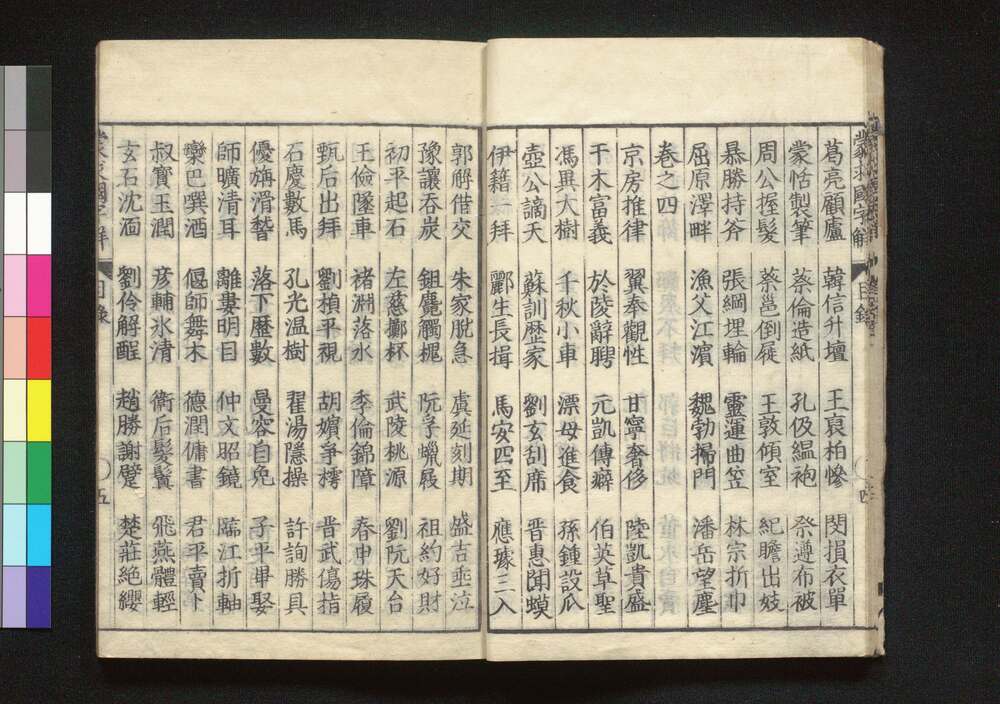 葛亮顧廬 韓信升壇 王裒柏慘 閔損衣單
蒙恬製筆 蔡倫造紙 孔伋縕袍 祭遵布被
周公握髮 蔡邕倒屣 王敦傾室 紀瞻出妓
暴勝持斧 張綱埋輪 靈運曲笠 林宗折巾
屈原澤畔 漁父江濱 魏勃掃門 潘岳望塵
卷之四
京房推律 翼奉觀性 甘寧奢侈 陸凱貴盛
干木富義 於陵辭聘 元凱傳癖 伯英草聖
馮異大樹 千秋小車 漂母進食 孫鍾設瓜
壺公謫天 蘇訓歷家 劉玄刮席 晉惠聞蟆
伊籍一拜 酈生長揖 馬安四至 應璩三入
郭解借交 朱家脫急 虞延刻期 盛吉垂泣
豫讓吞炭 鉏麑觸槐 阮孚蠟屐 祖約好財
初平起石 左慈擲杯 武陵桃源 劉阮天台
王儉墜車 褚淵落水 季倫錦障 春申珠履
甄后出拜 劉楨平視 胡嬪爭樗 晋武傷指
石慶數馬 孔光温樹 翟湯隱操 許詢勝具
優旃滑稽 落下歷數 曼容自免 子平畢娶
師曠清耳 離婁明目 仲文照鏡 臨江折軸
欒巴噀酒 偃師舞木 德潤傭書 君平賣卜
叔寳玉潤 彦輔氷清 衛后髮鬢 飛燕體輕
玄石沈湎 劉伶解酲 趙勝謝躄 楚莊絶纓